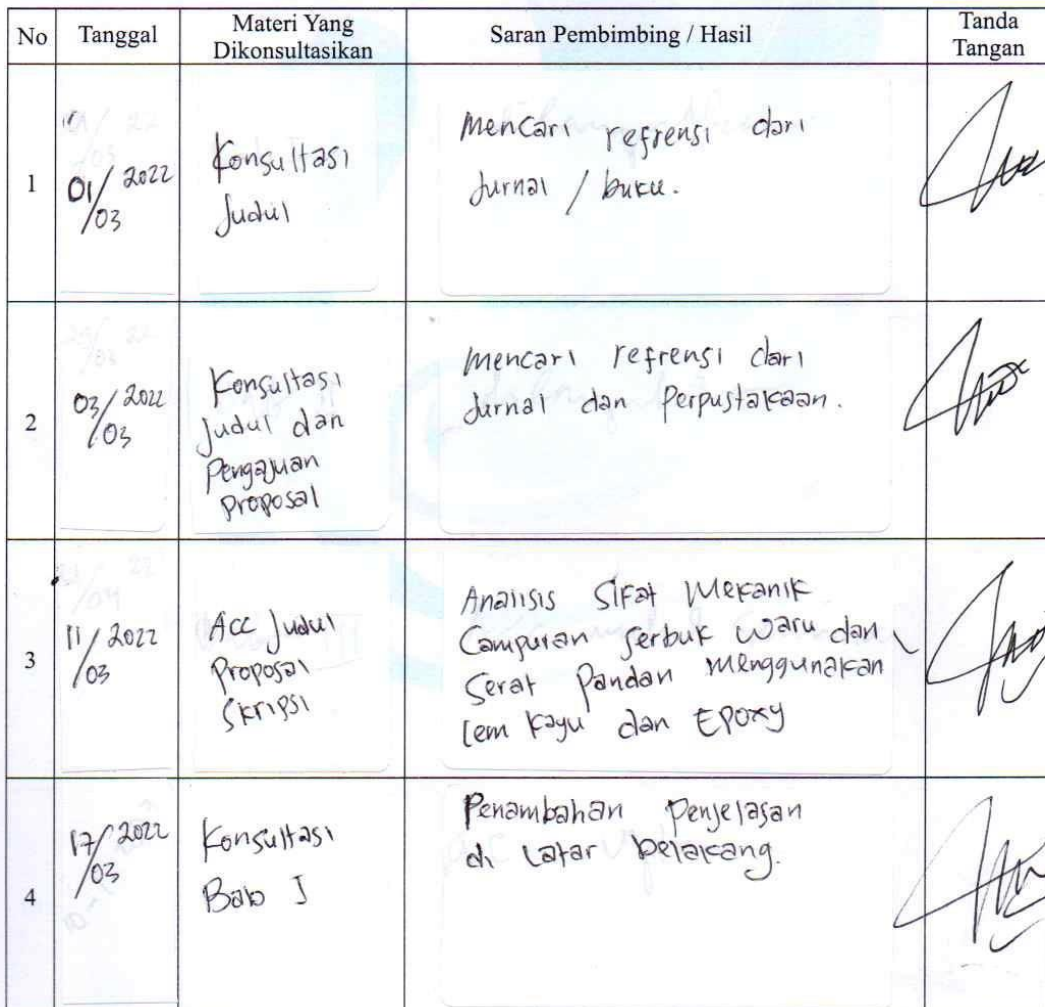 No Tanggal Materi Yang Dikonsultasikan Saran Pembimbing / Hasil Tanda Tangan
1
01/03 2022
Konsultasi
Judul
Mencari refrensi dari
Jurnal / buku.
2
03/03 2022
Konsultasi
Judul dan
Pengajuan
Proposal
Mencari refrensi dari
Jurnal dan Perpustakaan.
3
11/03 2022
Acc Judul
Proposal
Skripsi
Analisis Sifat Mekanik
Campuran Serbuk Waru dan
Serat Pandan Menggunakan
Lem Kayu dan Epoxy
4
17/03 2022
Konsultasi
Bab I
Penambahan Penjelasan
di Latar belakang.